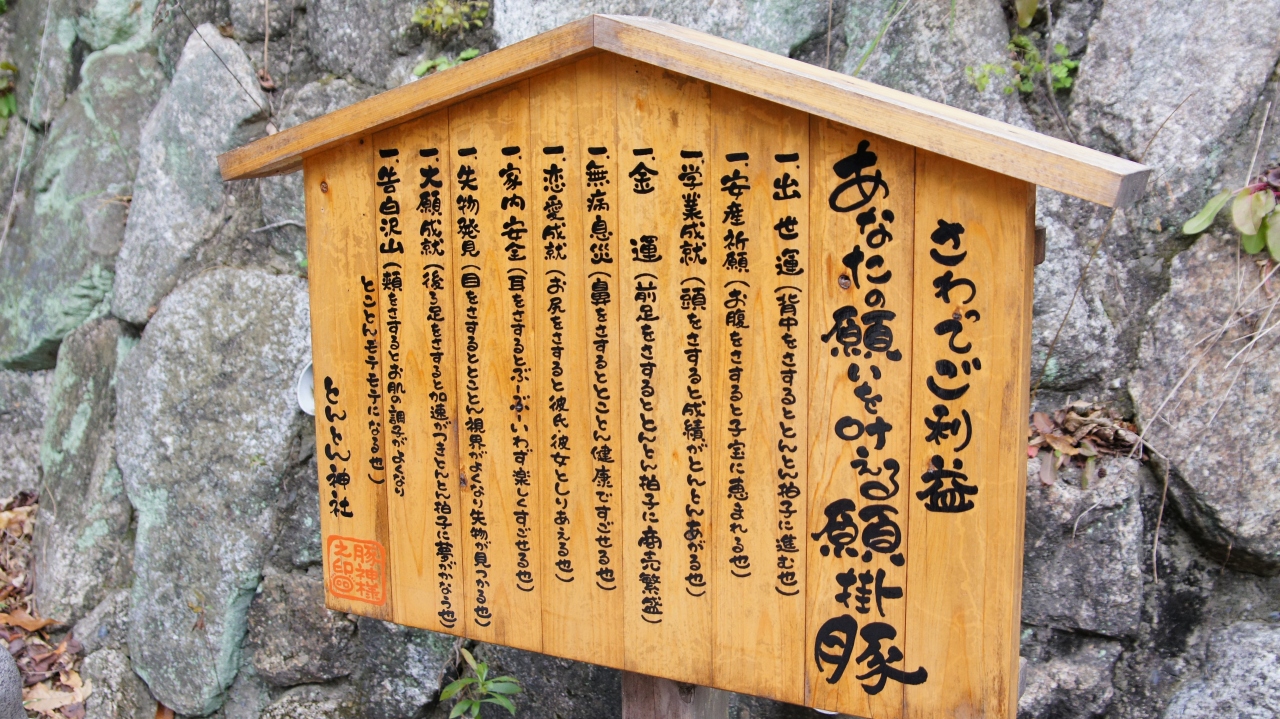 さわってご利益
あなたの願いを叶える願掛豚
一、出世運(背中をさするととんとん拍子に進む也)
一、安産祈願(お腹をさすると子宝に恵まれる也)
一、学業成就(頭をさすると成績がとんとんあがる也)
一、金運(前足をさするととんとん拍子に商売繁盛)
一、無病息災(鼻をさするととことん健康ですごせる也)
一、恋愛成就(お尻をさすると彼氏彼女としりあえる也)
一、家内安全(耳をさするとぶーぶーいわず楽しくすごせる也)
一、失物発見(目をさするととことん視界がよくなり失物が見つかる也)
一、大願成就(後る足をさすると加速がつきとんとん拍子に夢がかなう也)
一、告白沢山(頬をさするとお肌の調子がよくなり
とことんモテモテになる也)
とんとん神社
豚神様
之印